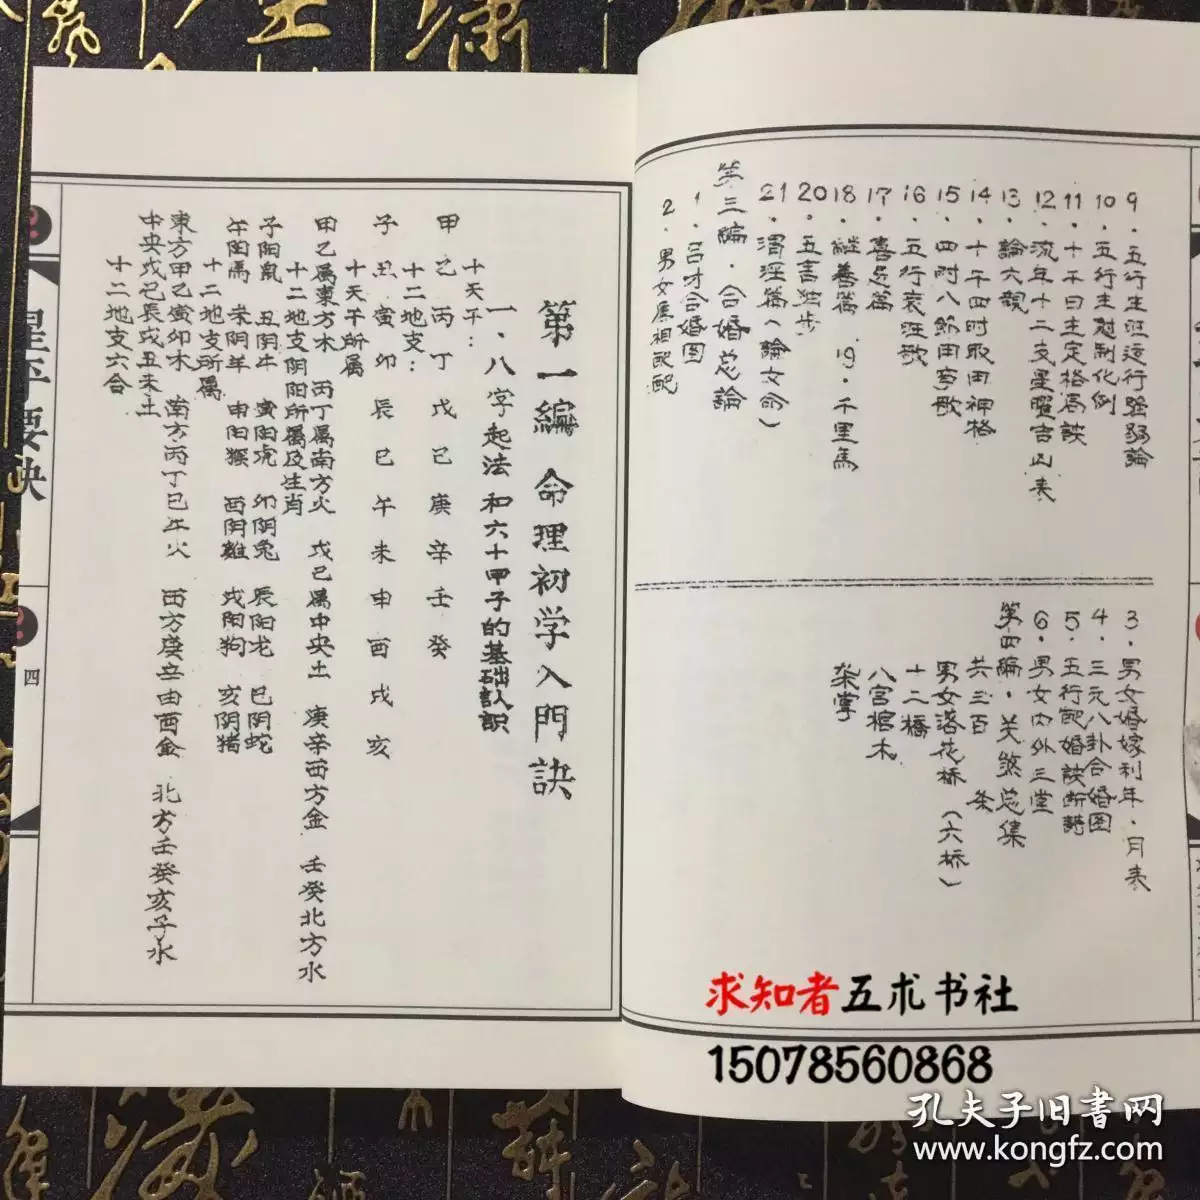 9．五行生旺运行强弱論
10．五行生尅制化例
11．十干日主定格局訣
12．流年十二支星曜吉凶表
13．論六親
14．十干四时取用神格
15．四时八節田亨歌
16．五行衰旺歌
17．喜忌篇
18．継善篇　19．千里馬
20．五言独步
21．渭泾篇（論女命）
第三編．合婚总論
1．吕才合婚图
2．男女属相配配
3．男女婚嫁利年．月表
4．三元八卦合婚图
5．五行配婚訣断語
6．男女内外三堂
第四編．关煞总集
共三百　条
男女落花桥（六桥）
十二橋
八宫棺木
架掌
第一編　命理初学入門訣
一．八字起法和六十甲子的基础认识
十天干：
甲乙丙丁戊己庚辛壬癸
十二地支：
子丑寅卯辰巳午未申酉戌亥
十天干所属
甲乙属東方木　丙丁属南方火　戊己属中央土　庚辛西方金　壬癸北方水
十二地支阴阳所属及生肖
子阳鼠　丑阴牛　寅阳虎　卯阴兔　辰阳龙　巳阴蛇
午阳馬　未阴羊　申阳猴　酉阴雞　戌阳狗　亥阴猪
十二地支所属
東方甲乙寅卯木　南方丙丁巳午火　西方庚辛申酉金　北方壬癸亥子水
中央戊己辰戌丑未土
十二地支六合
星平要訣
四
求知者五术书社
15078560868
孔夫子旧書网
www.kongfz.com